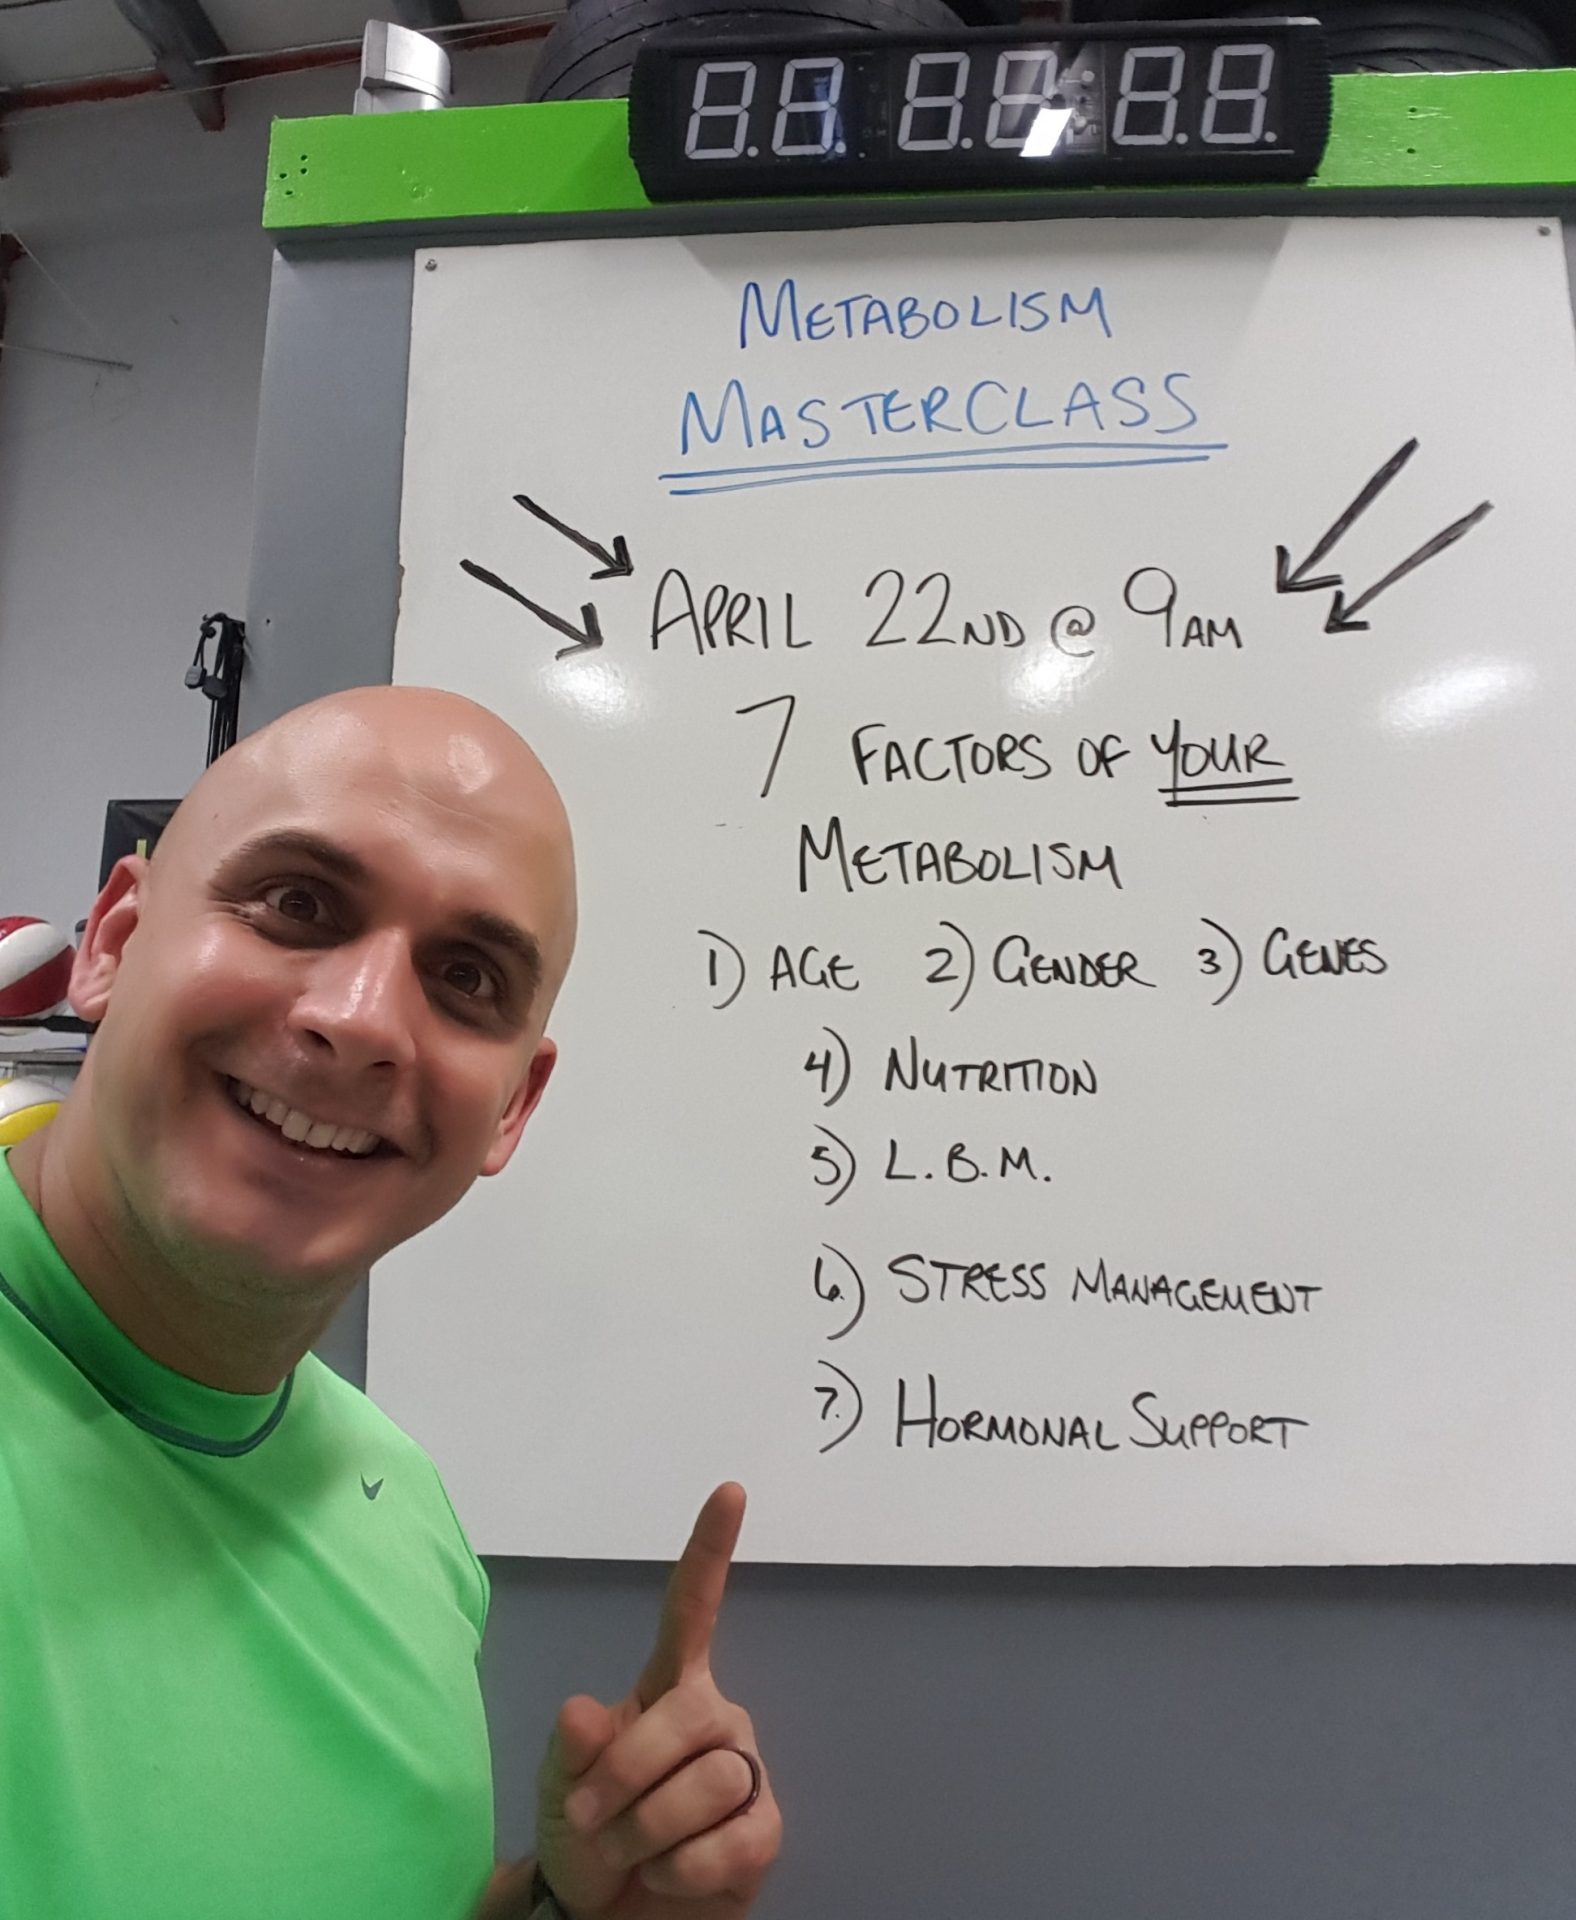 METABOLISM
MASTERCLASS
APRIL 22ND @ 9AM
7 FACTORS OF YOUR
METABOLISM
1) AGE 2) GENDER 3) GENES
4) NUTRITION
5) L.B.M.
6.) STRESS MANAGEMENT
7.) HORMONAL SUPPORT